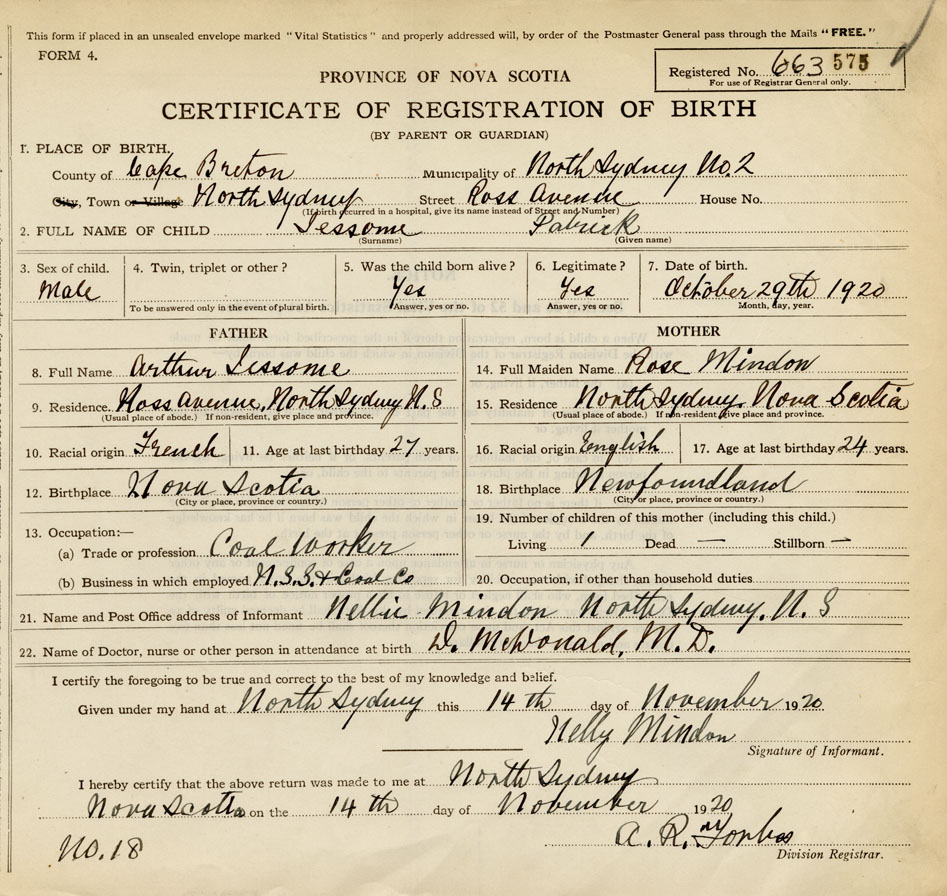 This form if placed in an unsealed envelope marked "Vital Statistics" and properly addressed will, by order of the Postmaster General pass through the Mails "FREE."
FORM 4.
Registered No. 663 575
For use of Registrar General only.
PROVINCE OF NOVA SCOTIA
CERTIFICATE OF REGISTRATION OF BIRTH
(BY PARENT OR GUARDIAN)
1. PLACE OF BIRTH.
County of Cape Breton Municipality of North Sydney No. 2
City, Town or Village North Sydney Street Ross Avenue House No.
(If birth occurred in a hospital, give its name instead of Street and Number)
2. FULL NAME OF CHILD Jessome Patrick
(Surname) (Given name)
3. Sex of child. 4. Twin, triplet or other? 5. Was the child born alive? 6. Legitimate? 7. Date of birth.
Male Yes Yes October 29th 1920
To be answered only in the event of plural birth. Answer, yes or no. Answer, yes or no. Month, day, year.
FATHER
8. Full Name Arthur Jessome
9. Residence. Ross Avenue, North Sydney N. S
(Usual place of abode.) If non-resident, give place and province.
10. Racial origin French 11. Age at last birthday 27 years.
12. Birthplace Nova Scotia
(City or place, province or country.)
13. Occupation:—
(a) Trade or profession Coal Worker
(b) Business in which employed N.S.S. & Coal Co
MOTHER
14. Full Maiden Name Rose Mindon
15. Residence North Sydney, Nova Scotia
(Usual place of abode.) If non-resident give place and province.
16. Racial origin English 17. Age at last birthday 24 years.
18. Birthplace Newfoundland
(City or place, province or country.)
19. Number of children of this mother (including this child.)
Living 1 Dead — Stillborn —
20. Occupation, if other than household duties
21. Name and Post Office address of Informant Nellie Mindon North Sydney, N. S
22. Name of Doctor, nurse or other person in attendance at birth D. McDonald, M. D.
I certify the foregoing to be true and correct to the best of my knowledge and belief.
Given under my hand at North Sydney this 14th day of November 1920
Nelly Mindon
Signature of Informant.
I hereby certify that the above return was made to me at North Sydney
Nova Scotia on the 14th day of November 1920
A. R. Forbes
Division Registrar.
No. 18